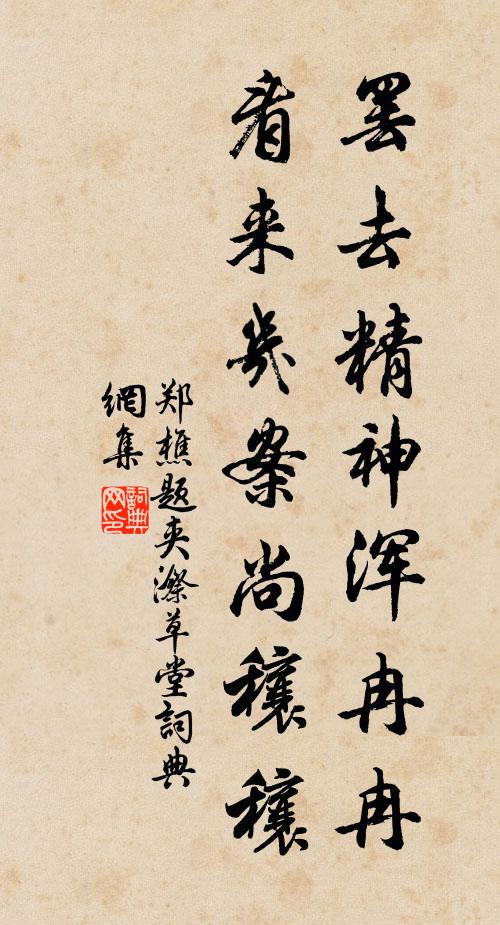 罢去精神浑冉冉
看来几案尚穰穰
郑樵题夹漈草堂詞典
網集
詞典
网印